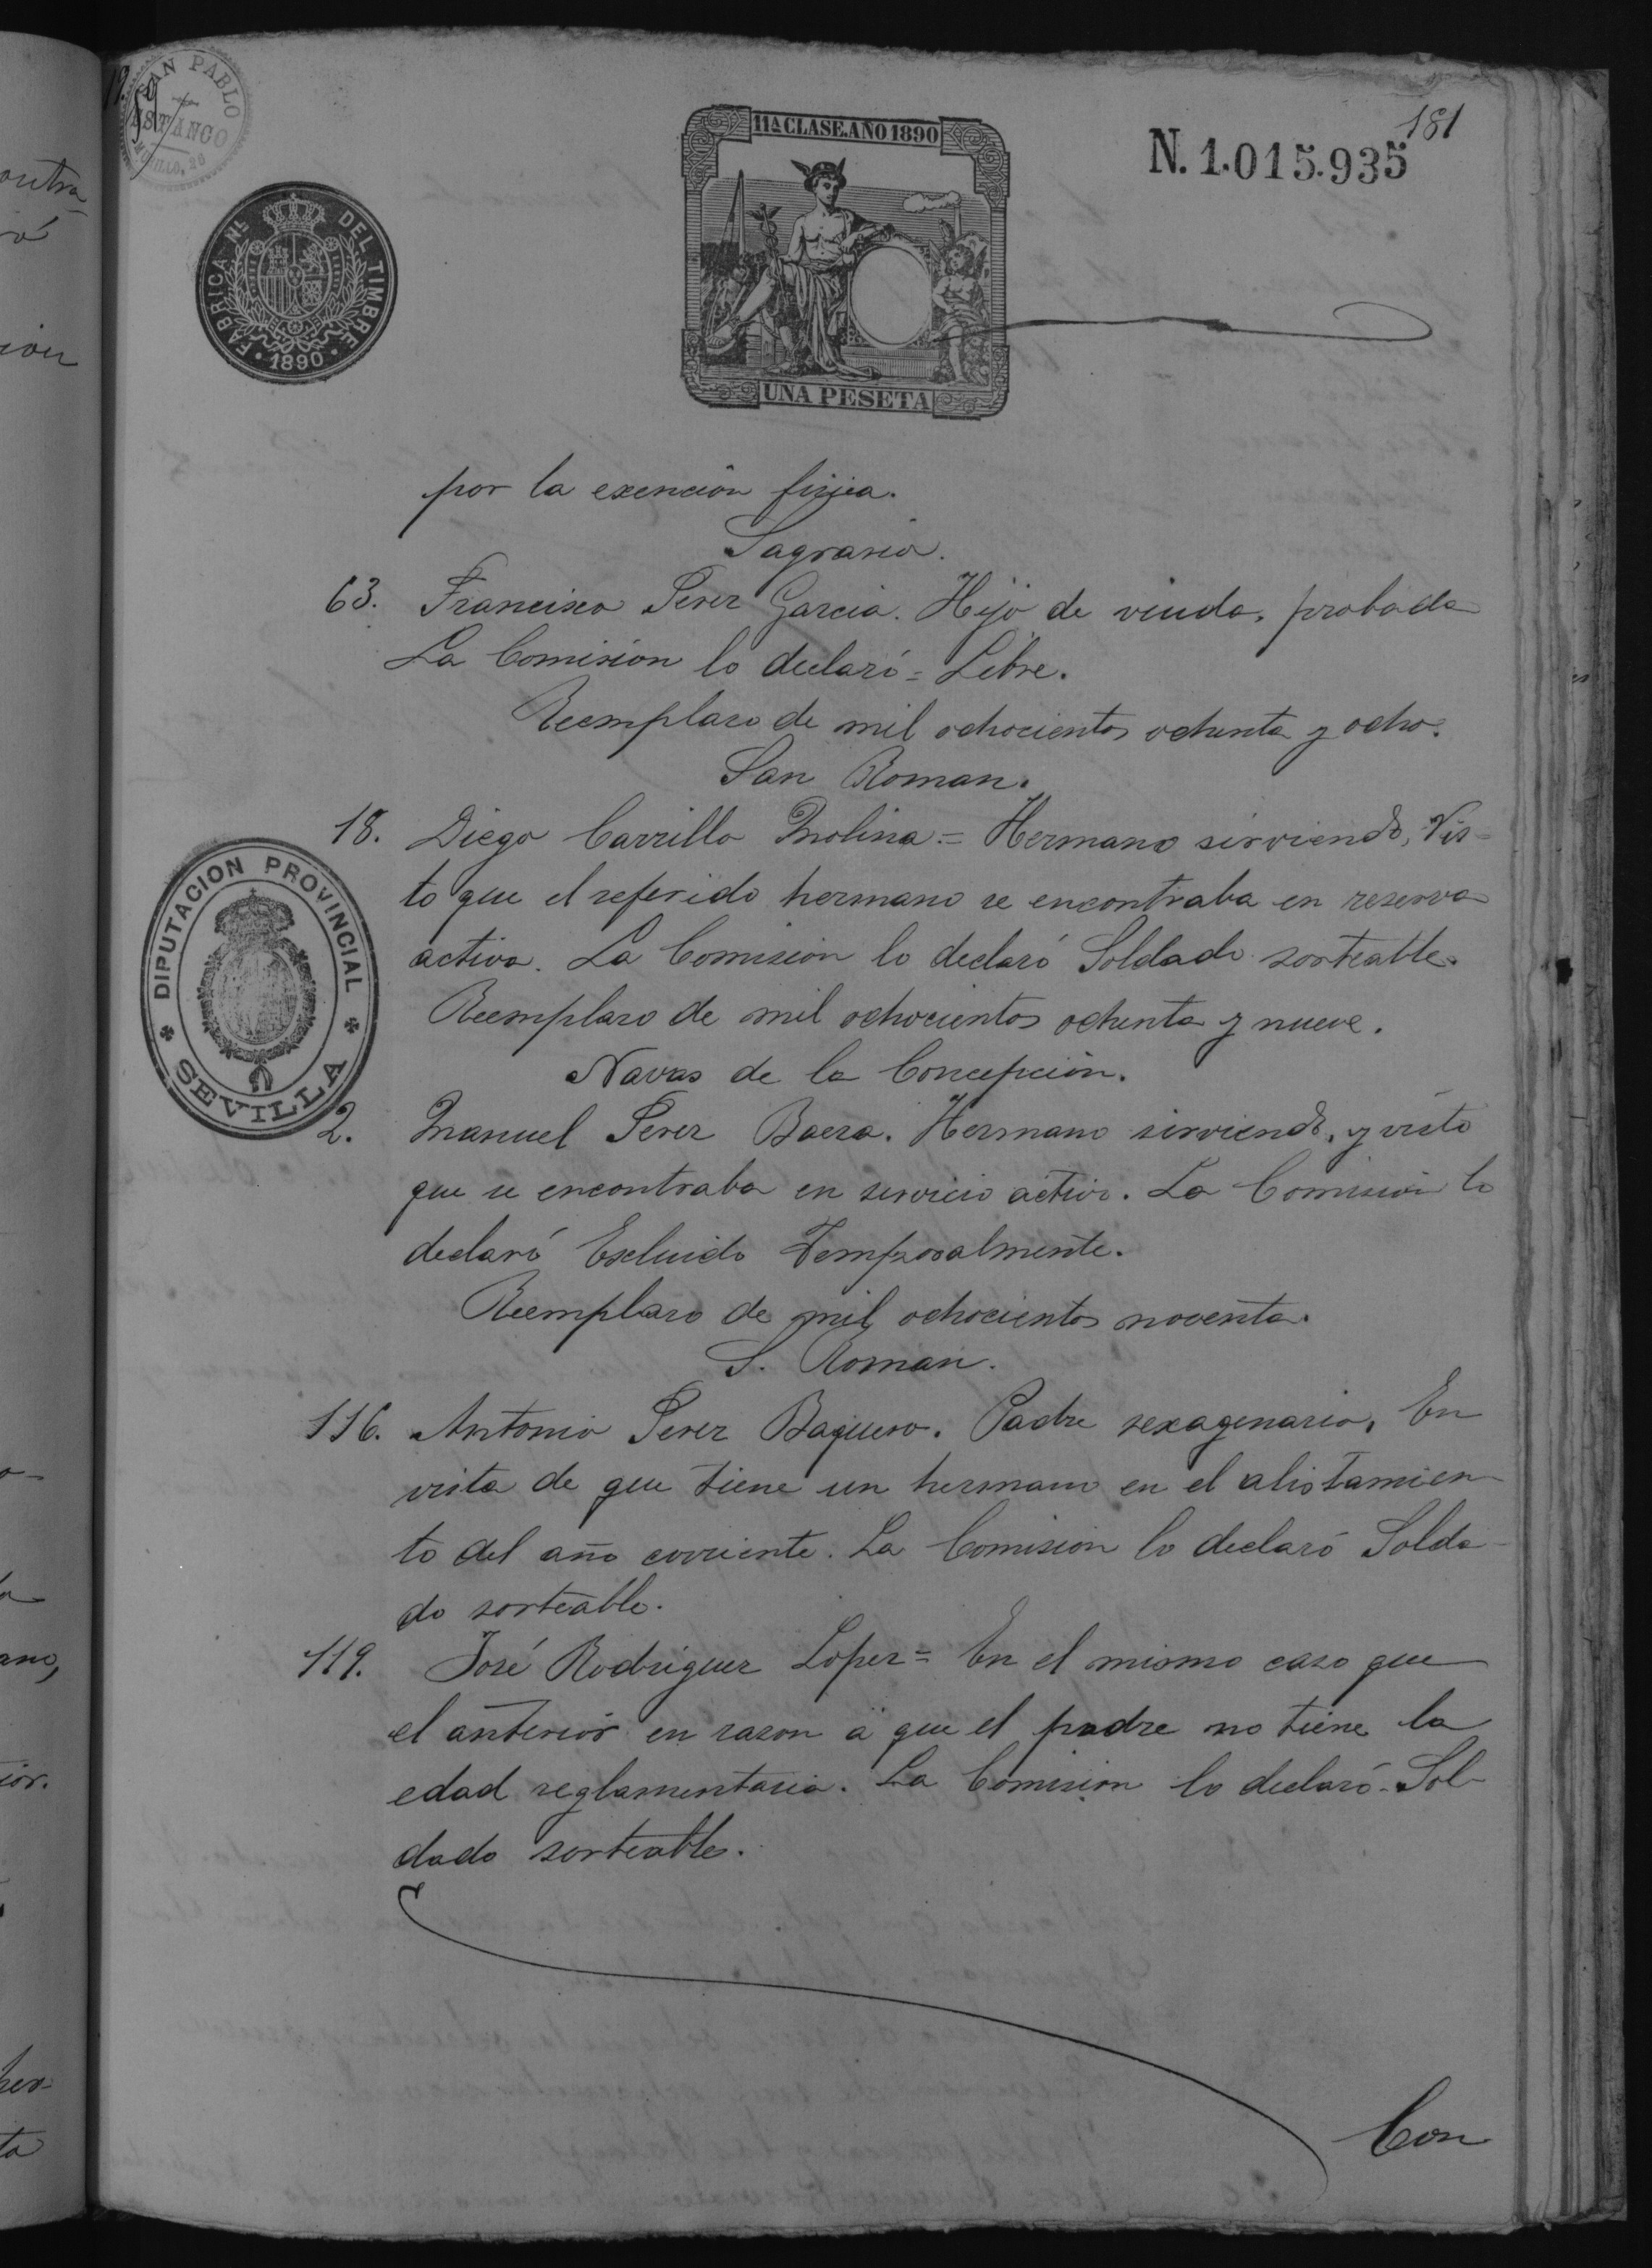 SAN PABLO
ESTANCO
FABRICA Nl. DEL TIMBRE
1890
11ª CLASE. AÑO 1890
UNA PESETA
181
N. 1.015.935
por la exencion fisica.
Sagrario.
63. Francisco Perez Garcia. Hijo de viuda, probada
La Comision lo declaró = Libre.
Reemplazo de mil ochocientos ochenta y ocho.
San Roman.
18. Diego Carrillo Molina = Hermano sirviendo, Vis-
to que el referido hermano se encontraba en reserva
activa. La Comision lo declaró Soldado sorteable.
Reemplazo de mil ochocientos ochenta y nueve.
Navas de la Concepcion.
DIPUTACION PROVINCIAL
SEVILLA
2. Manuel Perez Baeza. Hermano sirviendo, y visto
que se encontraba en servicio activo. La Comision lo
declaró Escluido Temporalmente.
Reemplazo de mil ochocientos noventa.
S. Roman.
116. Antonio Perez Baquero. Padre sexagenario, En
vista de que tiene un hermano en el alistamien-
to del año corriente. La Comision lo declaró Solda-
do sorteable.
119. José Rodriguez Lopez = En el mismo caso que
el anterior en razon á que el padre no tiene la
edad reglamentaria. La Comision lo declaró - Sol-
dado sorteable.
Con